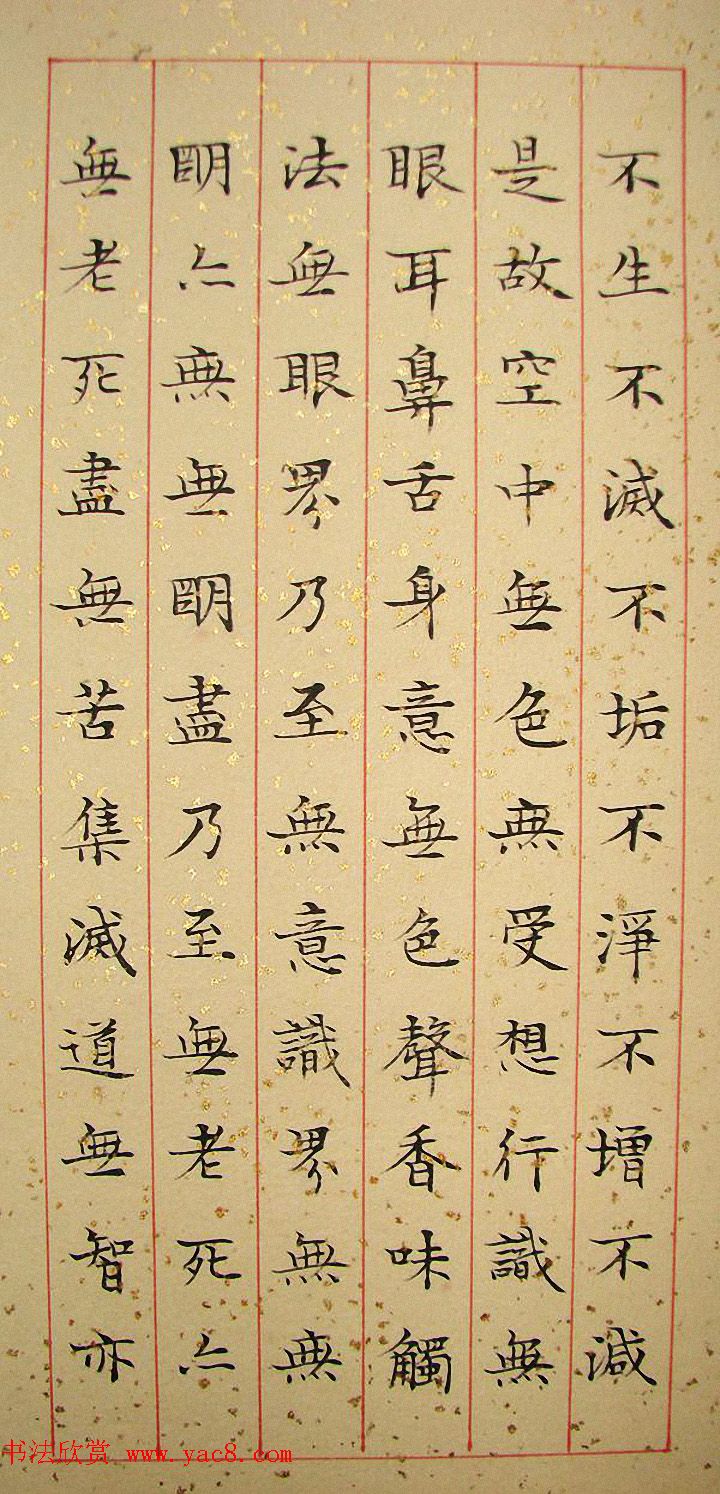 不生不滅不垢不淨不增不減
是故空中無色無受想行識無
眼耳鼻舌身意無色聲香味觸
法無眼界乃至無意識界無無
明亦無無明盡乃至無老死亦
無老死盡無苦集滅道無智亦
书法欣赏 www.yac8.com